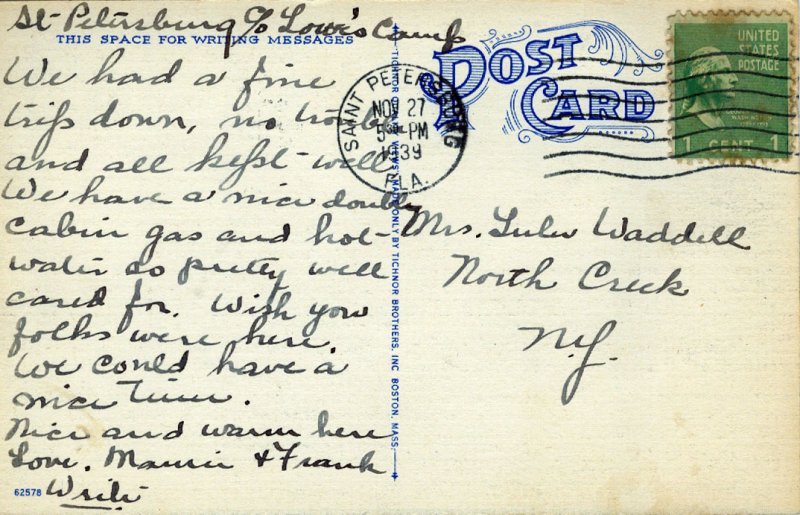 St-Petersburg c/o Lowe's Camp
THIS SPACE FOR WRITING MESSAGES
We had a fine
trip down, no trouble
and all kept well
We have a nice double
cabin gas and hot-
water so pretty well
cared for. Wish you
folks were here.
We could have a
nice time.
Nice and warm here
Love. Mamie & Frank
Write
62578
TICHNOR QUALITY VIEWS, MADE ONLY BY TICHNOR BROTHERS, INC. BOSTON, MASS.
POST
CARD
SAINT PETERSBURG
NOV 27
5 30 PM
1939
FLA.
UNITED
STATES
POSTAGE
GEORGE
WASHINGTON
1 CENT 1
Mrs. Lulu Waddell
North Creek
N.Y.